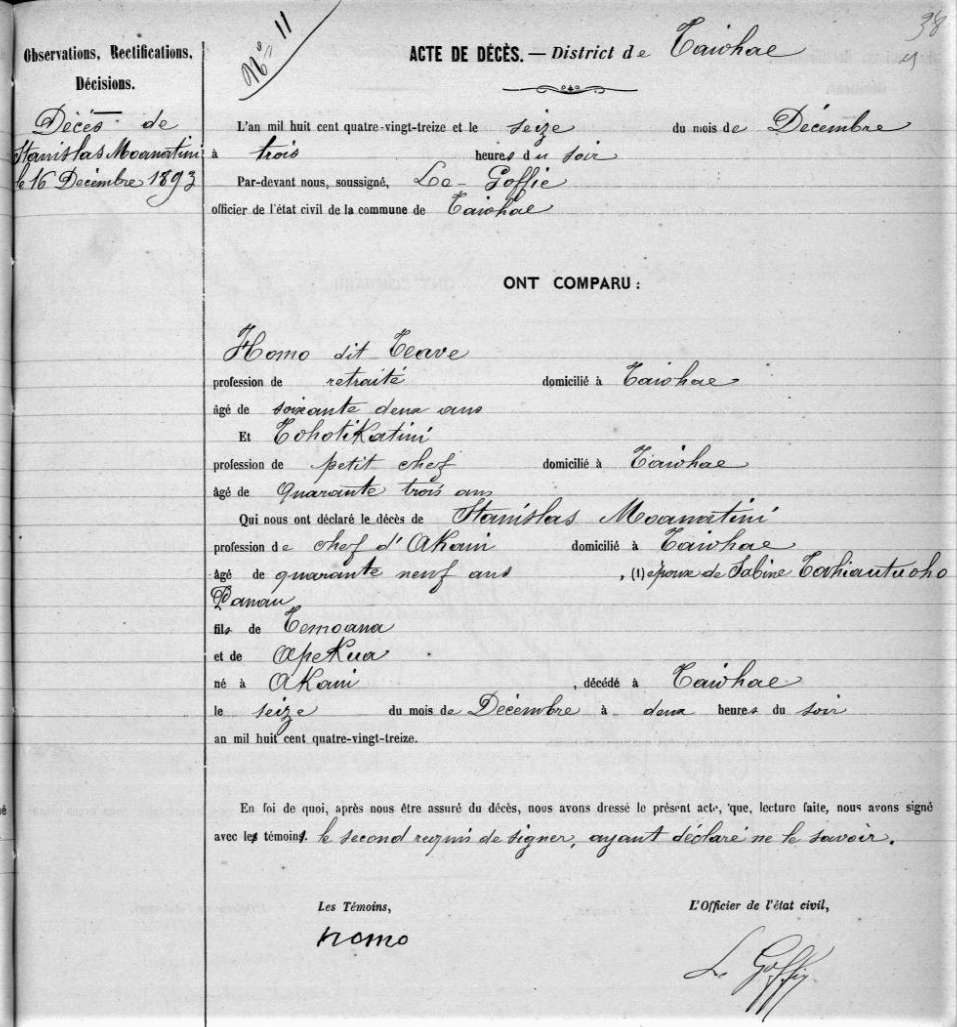 38
Nº 11
Observations, Rectifications,
Décisions.
Décès de
Stanislas Moanatini
le 16 Décembre 1893
ACTE DE DÉCÈS. — District de Taiohae
L'an mil huit cent quatre-vingt-treize et le seize du mois de Décembre
à trois heures du soir
Par-devant nous, soussigné, Le Goffic
officier de l'état civil de la commune de Taiohae
ONT COMPARU :
Homo dit Teave
profession de retraité domicilié à Taiohae
âgé de soixante deux ans
Et Tohotikatini
profession de petit chef domicilié à Taiohae
âgé de quarante trois ans
Qui nous ont déclaré le décès de Stanislas Moanatini
profession de chef d'Akani domicilié à Taiohae
âgé de quarante neuf ans , (1) époux de Sabine Tahiatuoho
Panau
fils de Temoana
et de Apekua
né à Akani , décédé à Taiohae
le seize du mois de Décembre à deux heures du soir
an mil huit cent quatre-vingt-treize.
En foi de quoi, après nous être assuré du décès, nous avons dressé le présent acte, que, lecture faite, nous avons signé
avec les témoins. le second requis de signer, ayant déclaré ne le savoir.
Les Témoins, L'Officier de l'état civil,
Homo
Le Goffic